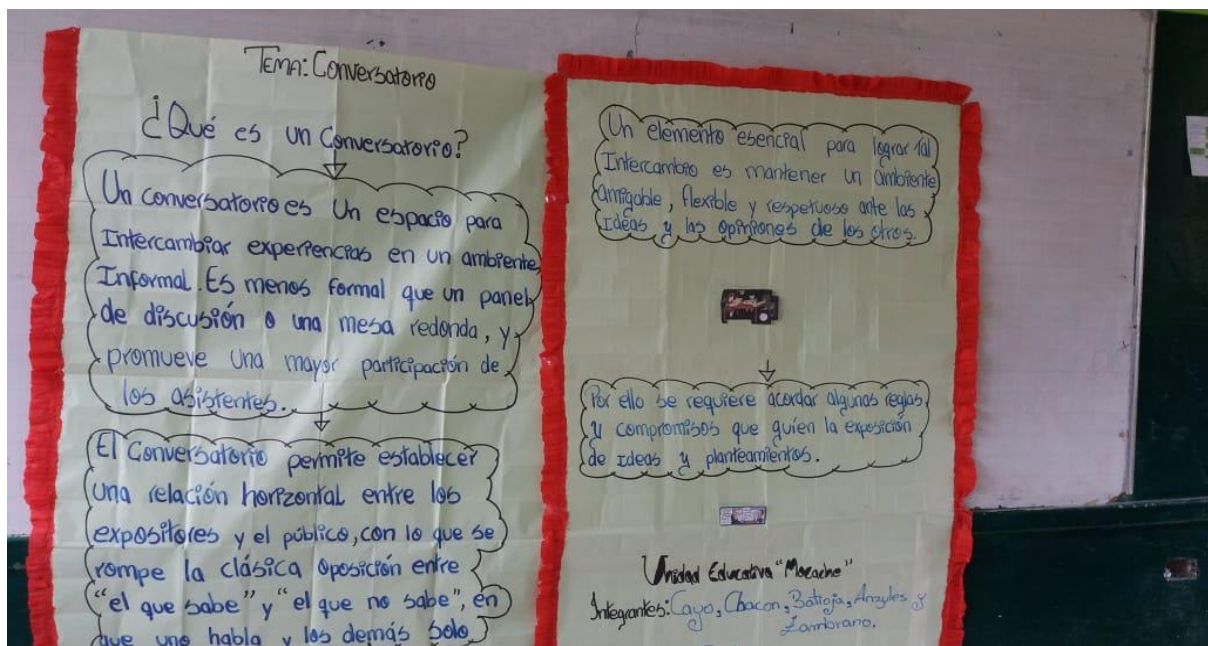 Tema: Conversatorio
¿Qué es un Conversatorio?
Un conversatorio es Un espacio para
Intercambiar experiencias en un ambiente
Informal. Es menos formal que un panel
de discusión o una mesa redonda, y
promueve una mayor participación de
los asistentes.
El Conversatorio permite establecer
una relación horizontal entre los
expositores y el público, con lo que se
rompe la clásica oposición entre
"el que sabe" y "el que no sabe", en
que uno habla y los demás solo
Un elemento esencial para lograr tal
Intercambio es mantener un ambiente
amigable, flexible y respetuoso ante las
Ideas y las opiniones de los otros.
Por ello se requiere acordar algunas reglas
y compromisos que guíen la exposición
de Ideas y planteamientos.
Unidad Educativa "Mocache"
Integrantes: Cayo, Chacon, Batioja, Anzules y
Zambrano.